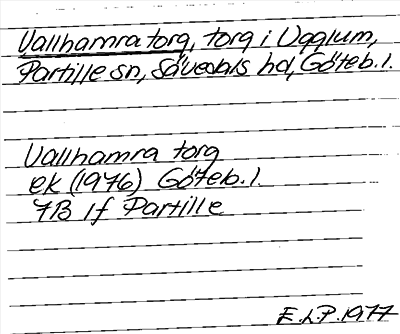 Vallhamra torg, torg i Ugglum,
Partille sn, Sävedals hd, Göteb. l.
Vallhamra torg
ek (1976) Göteb. l.
7B 1f Partille
E.L.P. 1977